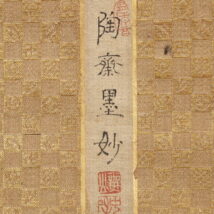 陶齋墨妙